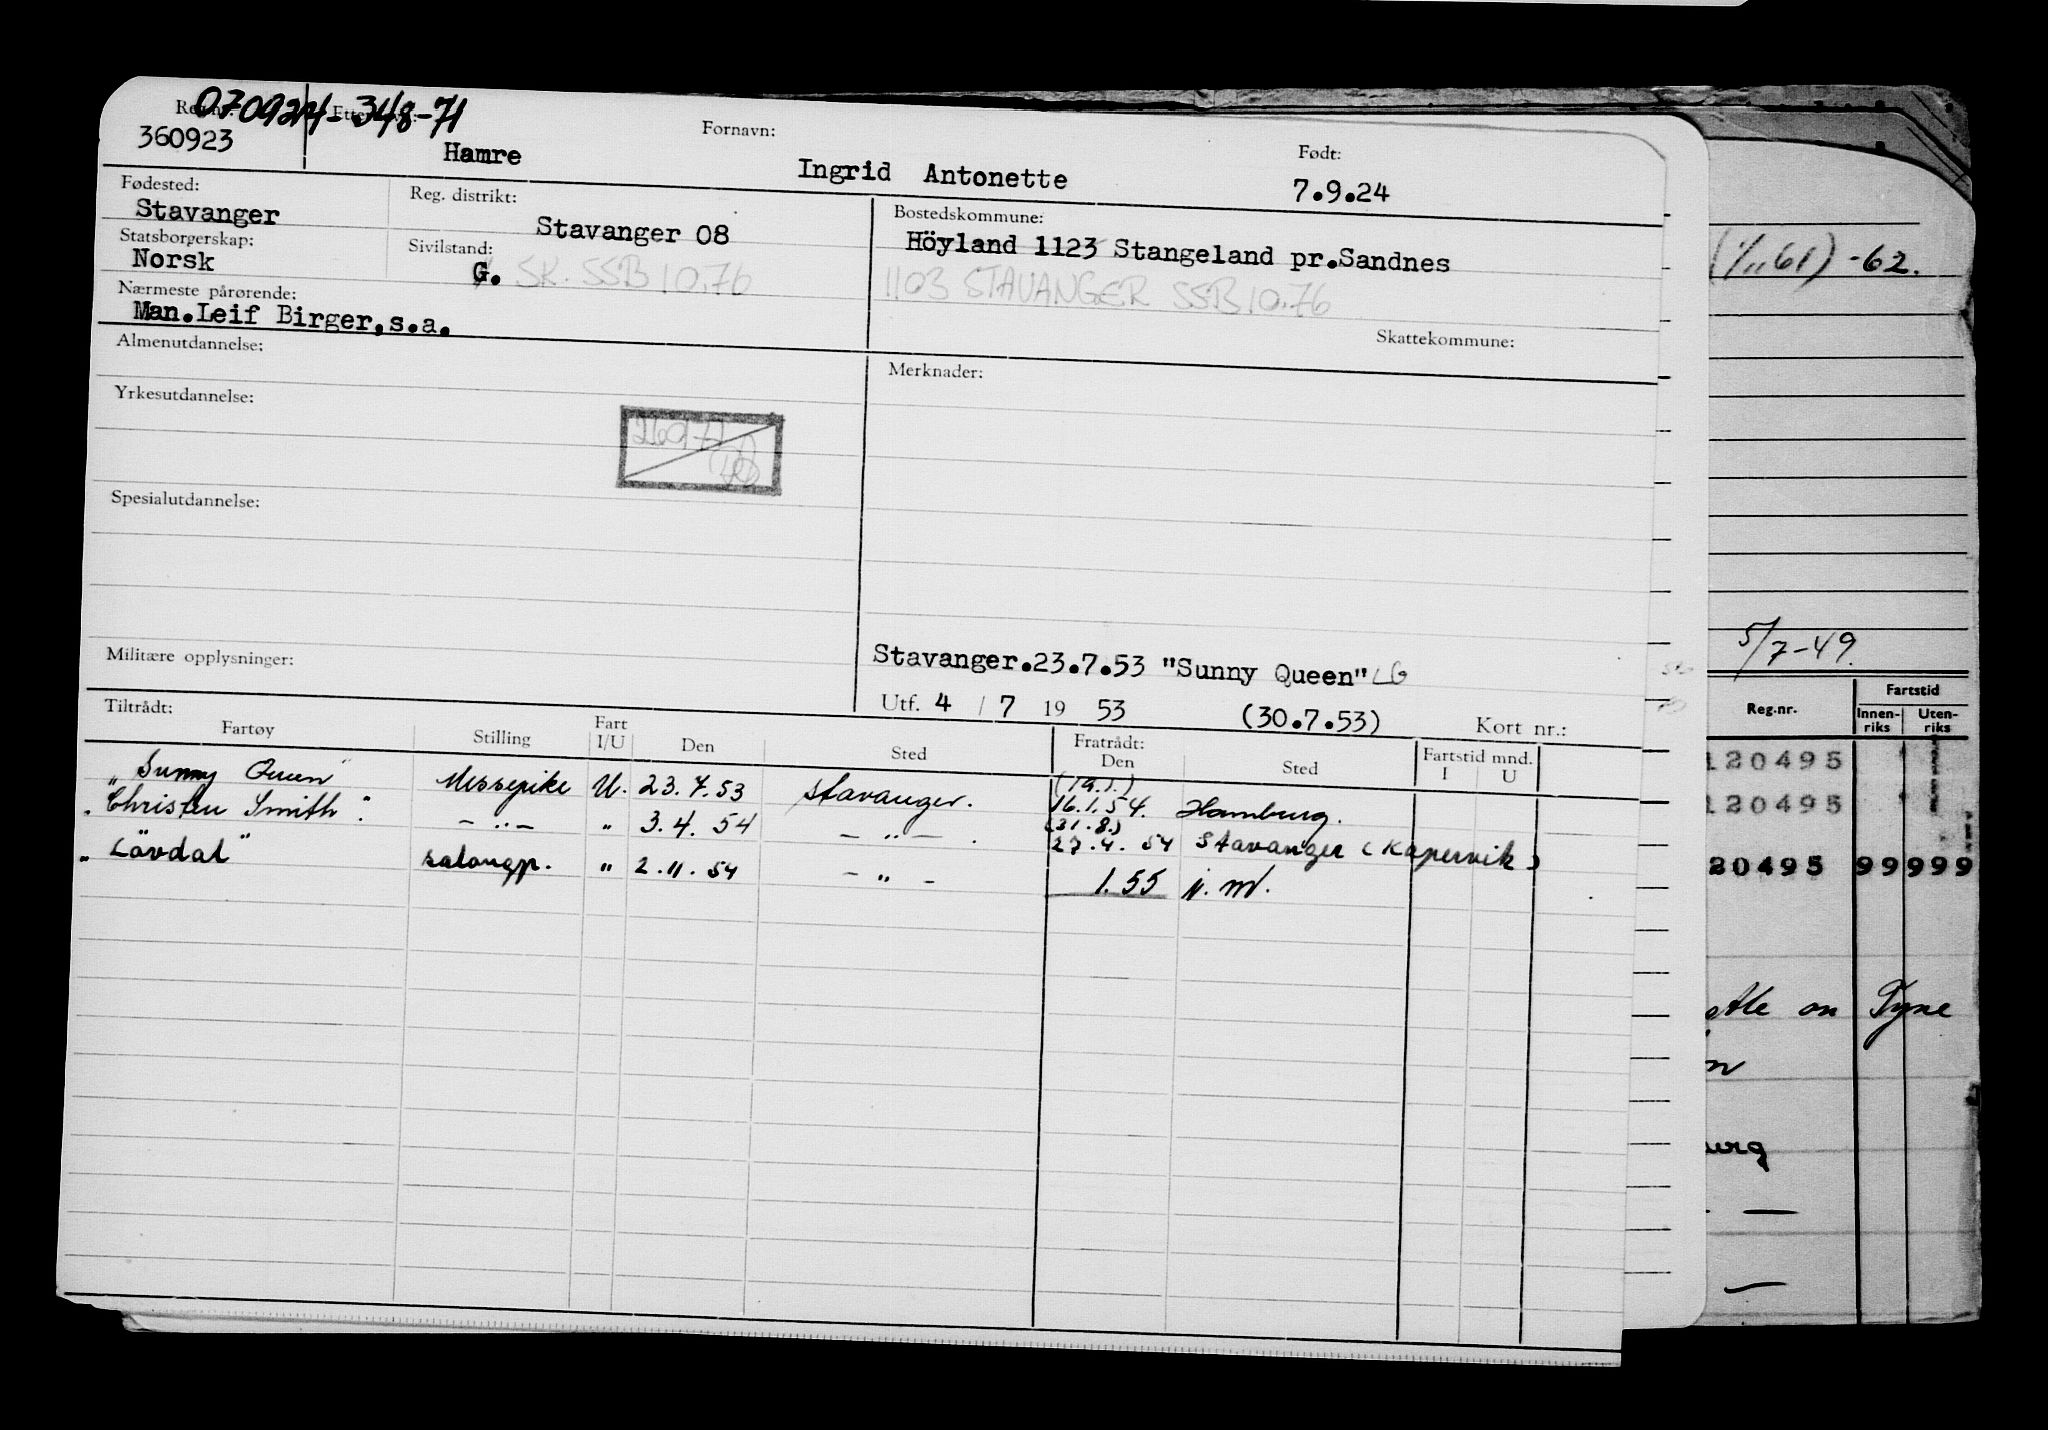 070924-348-71
Reg.nr. Etternavn: Fornavn: Født:
360923 Hamre Ingrid Antonette 7.9.24
Fødested: Reg. distrikt: Bostedskommune:
Stavanger Stavanger 08 Höyland 1123 Stangeland pr.Sandnes
Statsborgerskap: Sivilstand:
Norsk G. SK. SSB 10.76 1103 STAVANGER SSB 10.76
Nærmeste pårørende:
Man.Leif Birger,s.a.
Skattekommune:
Almenutdannelse: Merknader:
Yrkesutdannelse:
Spesialutdannelse:
Militære opplysninger: Stavanger.23.7.53 "Sunny Queen" LG
Utf. 4 / 7 19 53 (30.7.53) Kort nr.:
Tiltrådt: Fratrådt:
Fartøy Stilling Fart I/U Den Sted Den Sted Fartstid mnd. I U
"Sunny Queen" Messepike U. 23.7.53 Stavanger. (19.1.) 16.1.54. Hamburg.
"Christen Smith" — „ — " 3.4.54 — „ — (31.8.) 27.4.54 Stavanger (Kopervik)
"Lövdal" salongp. " 2.11.54 — „ — 1.55 n.m.
(1/11 61) -62.
5/7-49.
Reg.nr. Fartstid
Innen-riks Uten-riks
120495
120495
20495 99999
on Tyne